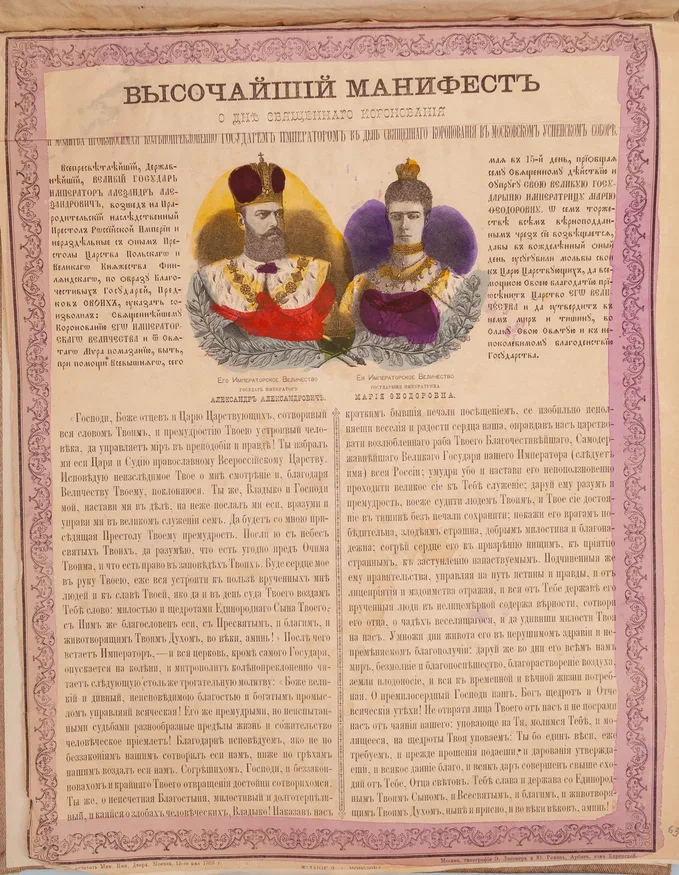 ВЫСОЧАЙШІЙ МАНИФЕСТЪ
О ДНѢ СВЯЩЕННАГО КОРОНОВАНІЯ
И МОЛИТВА ПРОИЗНОСИМАЯ КОЛѢНОПРЕКЛОНЕННО ГОСУДАРЕМЪ ИМПЕРАТОРОМЪ ВЪ ДЕНЬ СВЯЩЕННАГО КОРОНОВАНІЯ ВЪ МОСКОВСКОМЪ УСПЕНСКОМЪ СОБОРѢ.
Всепресвѣтлѣйшій, Держав-
нѣйшій, ВЕЛИКІЙ ГОСУДАРЬ
ИМПЕРАТОРЪ АЛЕѮАНДРЪ АЛЕ-
ѮАНДРОВИЧЪ, возшедъ на Пра-
родительскій наслѣдственный
Престолъ Россійской Имперіи и
нераздѣльные съ онымъ Пре-
столы Царства Польскагѡ и
Великагѡ Княжества Фин-
ляндскагѡ, по образу Благо-
честивыхъ Государей, Пред-
ковъ СВОИХЪ, указать со-
изволилъ: Священнѣйшему
Коронованію ЕГѠ ИМПЕРАТОР-
СКАГѠ ВЕЛИЧЕСТВА и ѿ Свѧ-
тагѡ Мѵра помазанію, быть,
при помощи Всевышнягѡ, сего
мая въ 15-й день, пріобщая
сему Священному дѣйствію и
Супругу СВОЮ ВЕЛИКУЮ ГОСУ-
ДАРЫНЮ ИМПЕРАТРИЦУ МАРІЮ
ѲЕОДОРОВНУ. Ѡ семъ торже-
ствѣ всѣмъ вѣрноподдан-
нымъ чрезъ сіе возвѣщается,
дабы въ вожделѣнный оный
день усугубили мольбы свои
къ Царю Царствующихъ, да все-
мощною Своею благодатію прі-
осѣнитъ Царство ЕГѠ ВЕЛИ-
ЧЕСТВА и да утвердитъ въ
немъ миръ и тишину, во
Славу Свою Святую и къ не-
поколебимому благоденствію
Государства.
Его Императорское Величество
ГОСУДАРЬ ИМПЕРАТОРЪ
АЛЕКСАНДРЪ АЛЕКСАНДРОВИЧЪ.
Ея Императорское Величество
ГОСУДАРЫНЯ ИМПЕРАТРИЦА
МАРІЯ ѲЕОДОРОВНА.
«Господи, Боже отцевъ и Царю Царствующихъ, сотворивый
вся словомъ Твоимъ, и премудростію Твоею устроивый чело-
вѣка, да управляетъ міръ въ преподобіи и правдѣ! Ты избралъ
мя еси Царя и Судію православному Всероссійскому Царству.
Исповѣдую неизслѣдимое Твое о мнѣ смотрѣніе и, благодаря
Величеству Твоему, поклоняюся. Ты же, Владыко и Господи
мой, настави мя въ дѣлѣ, на неже послалъ мя еси, вразуми и
управи мя въ великомъ служеніи семъ. Да будетъ со мною при-
сѣдящая Престолу Твоему премудрость. Посли ю съ небесъ
святыхъ Твоихъ, да разумѣю, что есть угодно предъ Очима
Твоима, и что есть право въ заповѣдехъ Твоихъ. Буди сердце мое
въ руку Твоею, еже вся устроити къ пользѣ врученныхъ мнѣ
людей и къ славѣ Твоей, яко да и въ день суда Твоего воздамъ
Тебѣ слово: милостью и щедротами Единороднаго Сына Твоего,
съ Нимъ же благословенъ еси, съ Пресвятымъ, и благимъ, и
животворящимъ Твоимъ Духомъ, во вѣки, аминь!» Послѣ чего
встаетъ Императоръ,—и вся церковь, кромѣ самого Государя,
опускается на колѣни, и митрополитъ колѣнопреклоненно чи-
таетъ слѣдующую столь же трогательную молитву: «Боже вели-
кій и дивный, неисповѣдимою благостью и богатымъ промыс-
ломъ управляяй всяческая! Его же премудрыми, но неиспытан-
ными судьбами разнообразные предѣлы жизнь и сожительство
человѣческое пріемлетъ! Благодарнѣ исповѣдуемъ, яко не по
беззаконіямъ нашимъ сотворилъ еси намъ, ниже по грѣхамъ
нашимъ воздалъ еси намъ. Согрѣшихомъ, Господи, и беззакон-
новахомъ и крайняго Твоего отвращенія достойна сотворихомся.
Ты же, о неисчетная Благостыня, милостивый и долготерпѣли-
вый, и каяйся о злобахъ человѣческихъ, Владыко! Наказавъ насъ
краткимъ бывшія печали посѣщеніемъ, се изобильно испол-
нилъ еси веселія и радости сердца наша, оправдавъ насъ царство-
вати возлюбленнаго раба Твоего Благочестивѣйшаго, Самодер-
жавнѣйшаго Великаго Государя нашего Императора (слѣдуетъ
имя) всея Россіи; умудри убо и настави его непоползновенно
проходити великое сіе къ Тебѣ служеніе; даруй ему разумъ и
премудрость, воеже судити людемъ Твоимъ, и Твое сіе достоя-
ніе въ тишинѣ безъ печали сохранити; покажи его врагамъ по-
бѣдительна, злодѣямъ страшна, добрымъ милостива и благона-
дежна; согрѣй сердце его къ призрѣнію нищихъ, къ пріятію
страннымъ, къ заступленію напаствуемыхъ. Подчиненныя же
ему правительства, управляя на путь истины и правды, и отъ
лицепріятія и мздоимства отражая, и вся отъ Тебе державѣ его
врученныя люди въ нелицемѣрной содержа вѣрности, сотвори
его отца, о чадѣхъ веселящагося, и да удивиши милости Твоя
на насъ. Умножи дни живота его въ нерушимомъ здравіи и не-
премѣняемомъ благополучіи: даруй же во дни его всѣмъ намъ
миръ, безмолвіе и благоспѣшество, благорастворение воздуха,
земли плодоносіе, и вся къ временной и вѣчной жизни потреб-
ная. О премилосердый Господи нашъ, Богъ щедротъ и Отче
всякія утѣхи! Не отврати лица Твоего отъ насъ и не посрами
насъ отъ чаянія нашего; уповающе на Тя, молимся Тебѣ, и мо-
лящееся, на щедроты Твоя уповаемъ: Ты бо единъ вѣси, еже
требуемъ, и прежде прошенія подаеши, и дарованія утвержда-
еши, и всякое даніе благо, и всякъ даръ совершенъ свыше схо-
дяй отъ Тебе, Отца свѣтовъ. Тебѣ слава и держава со Единород-
нымъ Твоимъ Сыномъ, и Всесвятымъ, и благимъ, и животворя-
щимъ Твоимъ Духомъ, нынѣ и присно, и во вѣки вѣковъ, аминь!